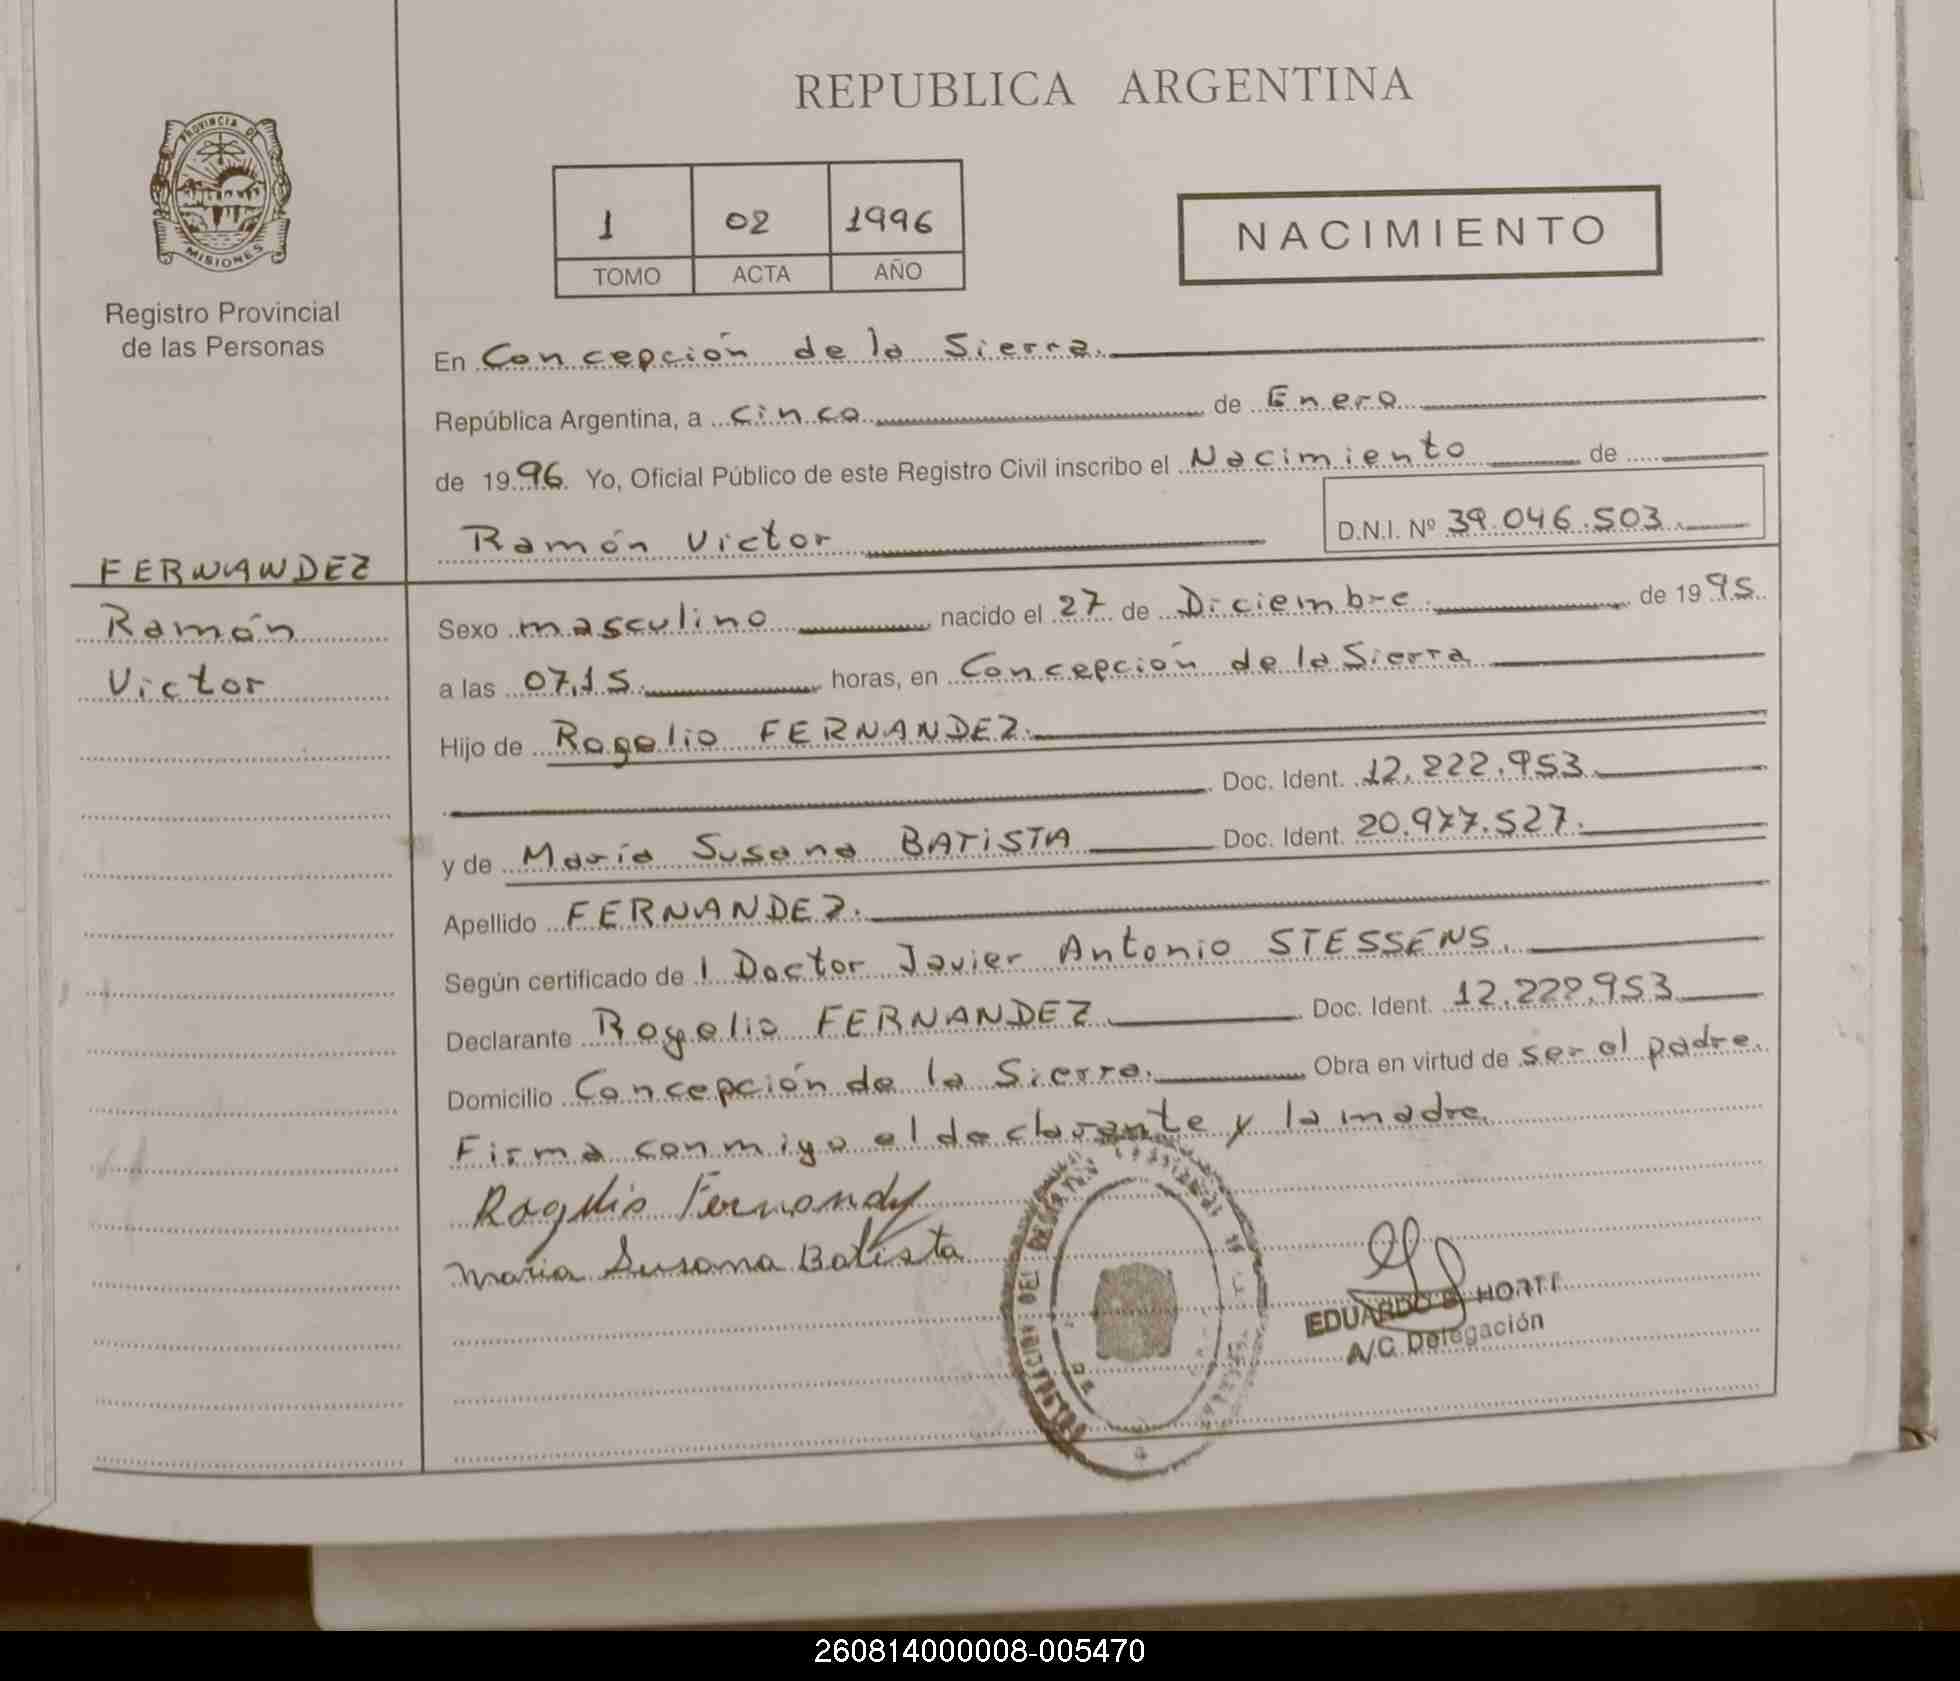 REPUBLICA ARGENTINA
PROVINCIA DE
MISIONES
Registro Provincial
de las Personas
1 02 1996
TOMO ACTA AÑO
NACIMIENTO
En Concepción de la Sierra.
República Argentina, a cinco de Enero
de 1996. Yo, Oficial Público de este Registro Civil inscribo el Nacimiento de
Ramón Victor D.N.I. Nº 39.046.503.
FERNANDEZ
Ramón
Victor
Sexo masculino nacido el 27 de Diciembre de 1995
a las 07,15 horas, en Concepción de la Sierra
Hijo de Rogelio FERNANDEZ.
Doc. Ident. 12.222.953
y de María Susana BATISTA Doc. Ident. 20.977.527.
Apellido FERNANDEZ.
Según certificado de l Doctor Javier Antonio STESSENS.
Declarante Rogelio FERNANDEZ Doc. Ident. 12.222.953
Domicilio Concepción de la Sierra. Obra en virtud de ser el padre.
Firma conmigo el declarante y la madre.
Rogelio Fernandez
Maria Susana Batista
EDUARDO
A/C Delegación
260814000008-005470